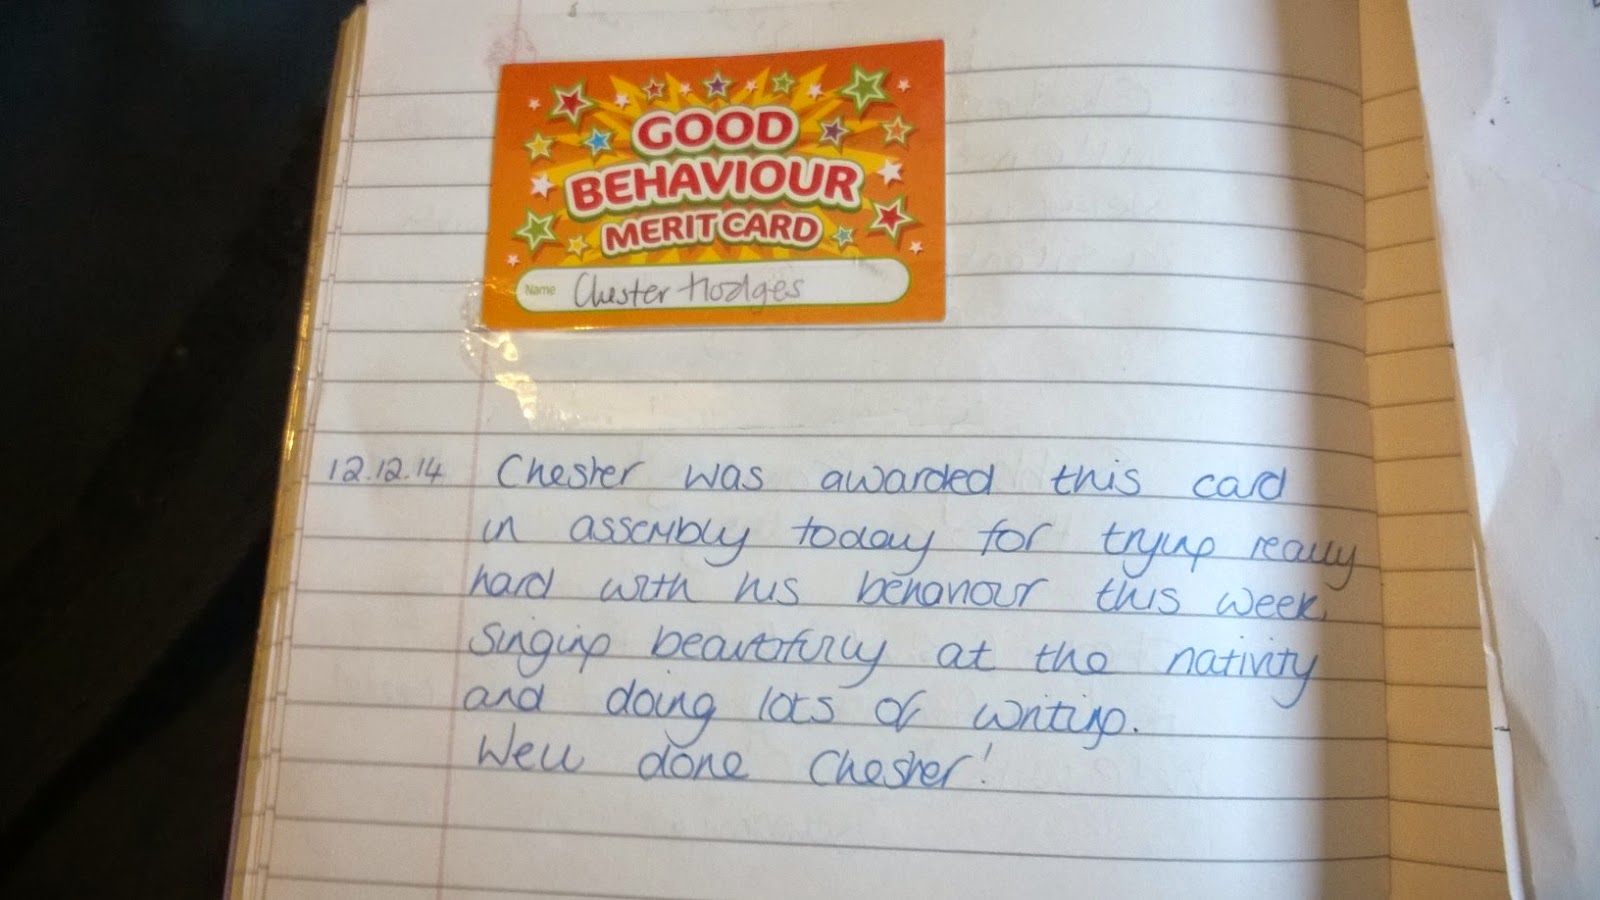 GOOD
BEHAVIOUR
MERIT CARD
Name Chester Hodges
12.12.14 Chester was awarded this card
in assembly today for trying really
hard with his behaviour this week,
singing beautifully at the nativity
and doing lots of writing.
Well done Chester!